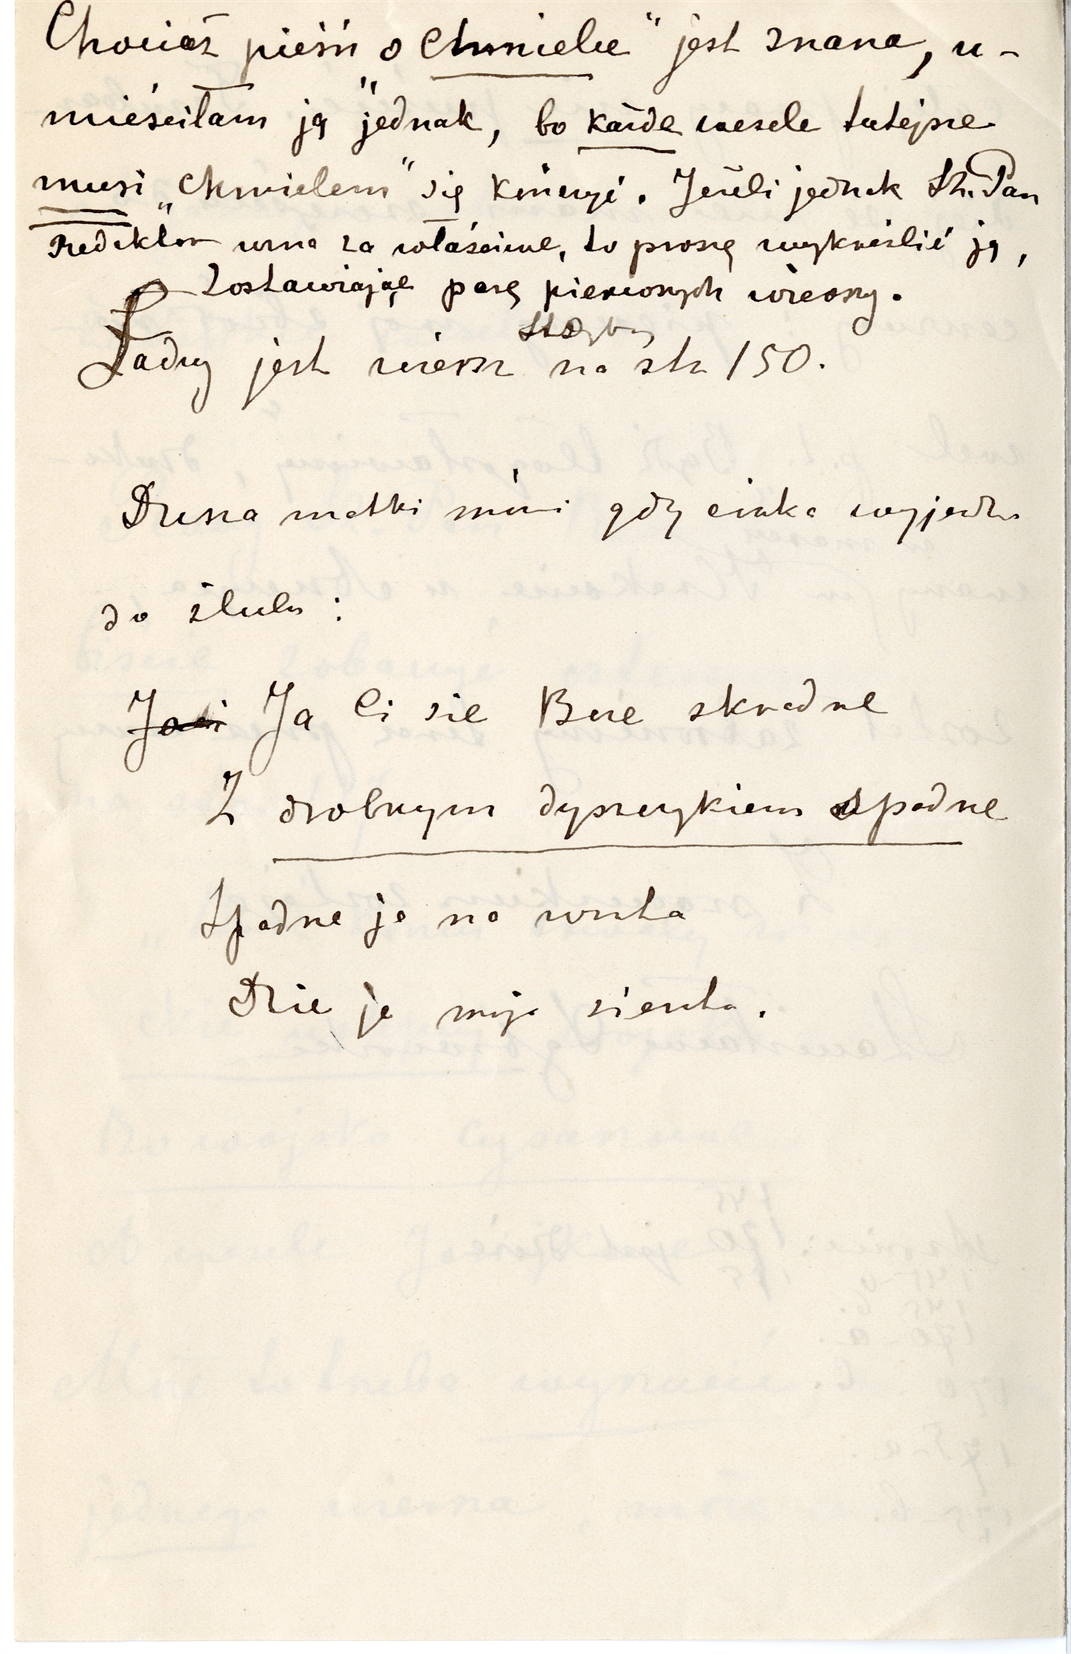 Chociaż pieśń o Chmielu" jest znana, u-
mieściłam ją jednak, bo każde wesele tutejsze
musi „Chmielem" się kończyć. Jeżeli jednak Sz. Pan
Redaktor uzna za właściwe, to proszę wykreślić ją,
zostawiając parę pierwszych wierszy.
Ładny jest wiersz na str 150.
Druga matki mówi gdy córka wyjeżdża
do ślubu:
Ja Ci sie Buze skradne
Z drobnym dyszczykiem spadne
Spadne ja na wruta
Dzie je moja sieruta.